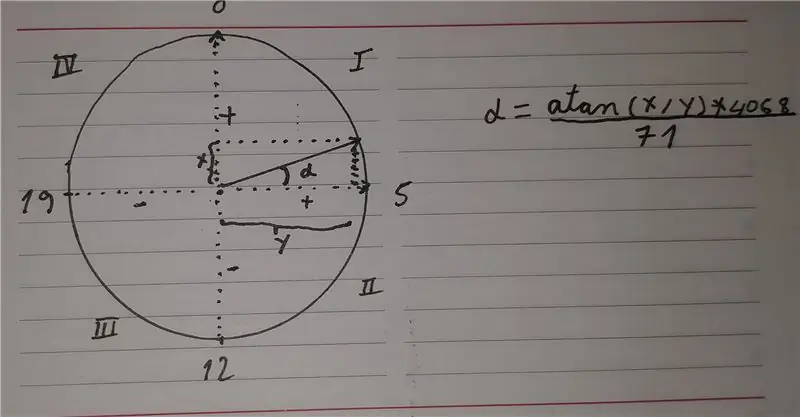 0
IV
I
+
x
α
19
-
+
5
y
-
III
II
12
α = atan(x/y)*4068
71